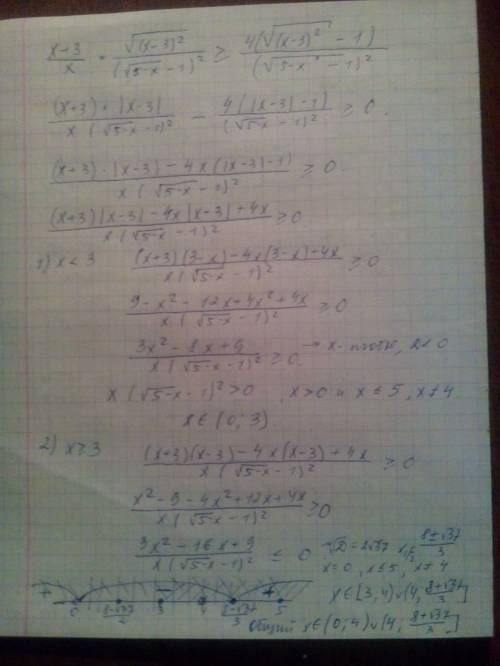 x+3/x * √(x-3)²/(√5-x -1)² ≥ 4(√(x-3)² -1)/(√5-x -1)²
(x+3)*|x-3|/x(√5-x -1)² - 4(|x-3|-1)/(√5-x -1)² ≥ 0.
(x+3)·|x-3|-4x(|x-3|-1)/x(√5-x -1)² ≥ 0.
(x+3)|x-3|-4x|x-3|+4x/x(√5-x -1)² ≥ 0
1) x<3 (x+3)(3-x)-4x(3-x)+4x/x(√5-x -1)² ≥ 0
9-x²-12x+4x²+4x/x(√5-x -1)² ≥ 0
3x²-8x+9/x(√5-x -1)² ≥ 0. → x- D<0
x(√5-x -1)²>0 , x>0 и x≤5, x≠4
x∈(0;3).
2) x≥3 (x+3)(x-3)-4x(x-3)+4x/x(√5-x -1)² ≥ 0
x²-9-4x²+12x+4x/x(√5-x -1)² ≥ 0
3x²-16x+9/x(√5-x -1)² ≤ 0 √D=2√37 x1,2 8±√37/3
x≠0, x≤5, x≠4
x∈[3,4)∪(4,8+√37/3]
+ 0 8-√37/3 3 4 8+√37/3 + 5
Общий x∈(0;4)∪(4;8+√37/3]